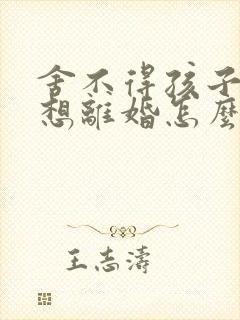 舍不得孩子
想離婚怎麼
王志濤